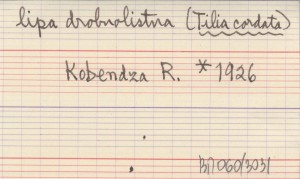 lipa drobnolistna (Tilia cordata)
Kobendza R. * 1926
BN060/3051